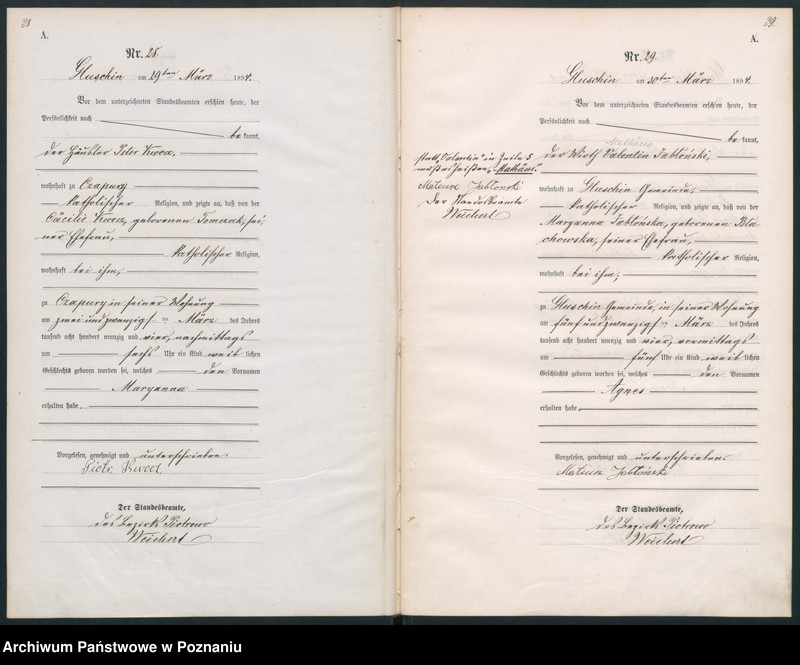 28
A.
Nr. 28.
Gluschin am 29ten März 1894.
Vor dem unterzeichneten Standesbeamten erschien heute, der
Persönlichkeit nach
bekannt,
der Häusler Peter Kwocz,
wohnhaft zu Czapury
katholischer Religion, und zeigte an, daß von der
Cäcilie Kwocz, geborenen Tomczak, sei-
ner Ehefrau,
katholischer Religion,
wohnhaft bei ihm,
zu Czapury in seiner Wohnung
am zwei und zwanzigsten März des Jahres
tausend acht hundert neunzig und vier, nachmittags
um sechs Uhr ein Kind weiblichen
Geschlechts geboren worden sei, welches den Vornamen
Maryanna
erhalten habe.
Vorgelesen, genehmigt und unterschrieben.
Piotr Kwocz
Der Standesbeamte,
des Bezirk Piotrowo
Weichert
29.
A.
Nr. 29.
Gluschin am 30ten März 1894.
Vor dem unterzeichneten Standesbeamten erschien heute, der
Persönlichkeit nach
bekannt,
Mathäus
der Wirth Valentin Jabłoński,
statt „Valentin“ in Zeile 5
muß es heißen „Mathäus“.
Mateusz Jabłonski
Der Standesbeamte
Weichert
wohnhaft zu Gluschin Gemeinde,
katholischer Religion, und zeigte an, daß von der
Maryanna Jabłońska, geborenen
chowska, seiner Ehefrau,
katholischer Religion,
wohnhaft bei ihm,
zu Gluschin Gemeinde, in seiner Wohnung
am fünf und zwanzigsten März des Jahres
tausend acht hundert neunzig und vier, vormittags
um fünf Uhr ein Kind weiblichen
Geschlechts geboren worden sei, welches den Vornamen
Agnes
erhalten habe.
Vorgelesen, genehmigt und unterschrieben.
Mateusz Jabłoński
Der Standesbeamte,
des Bezirk Piotrowo
Weichert
Archiwum Państwowe w Poznaniu